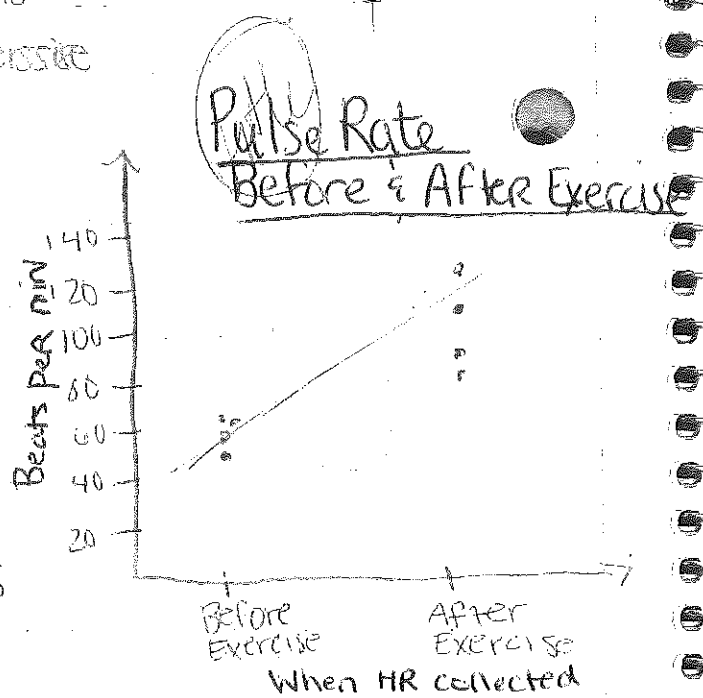 Pulse Rate
Before & After Exercise
Beats per min
140
120
100
80
60
40
20
Before
Exercise
After
Exercise
When HR collected